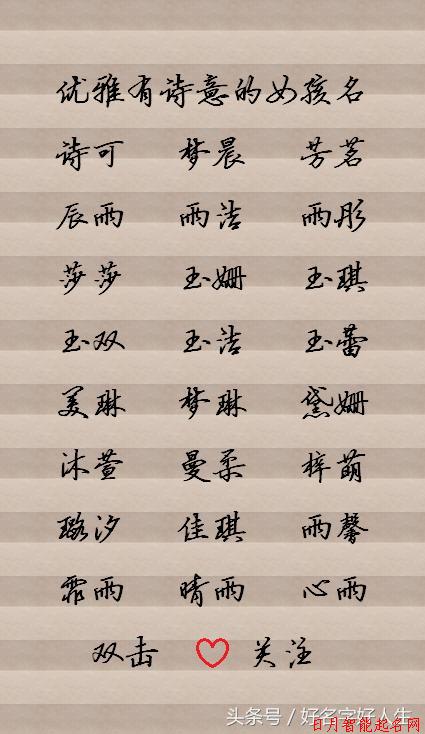 优雅有诗意的女孩名
诗可 梦晨 芳茗
辰雨 雨洁 雨彤
莎莎 玉姗 玉琪
玉双 玉洁 玉蕾
美琳 梦琳 黛姗
沐萱 曼柔 梓萌
璐汐 佳琪 雨馨
霏雨 晴雨 心雨
双击 关注
头条号 / 好名字好人生
日月智能起名网